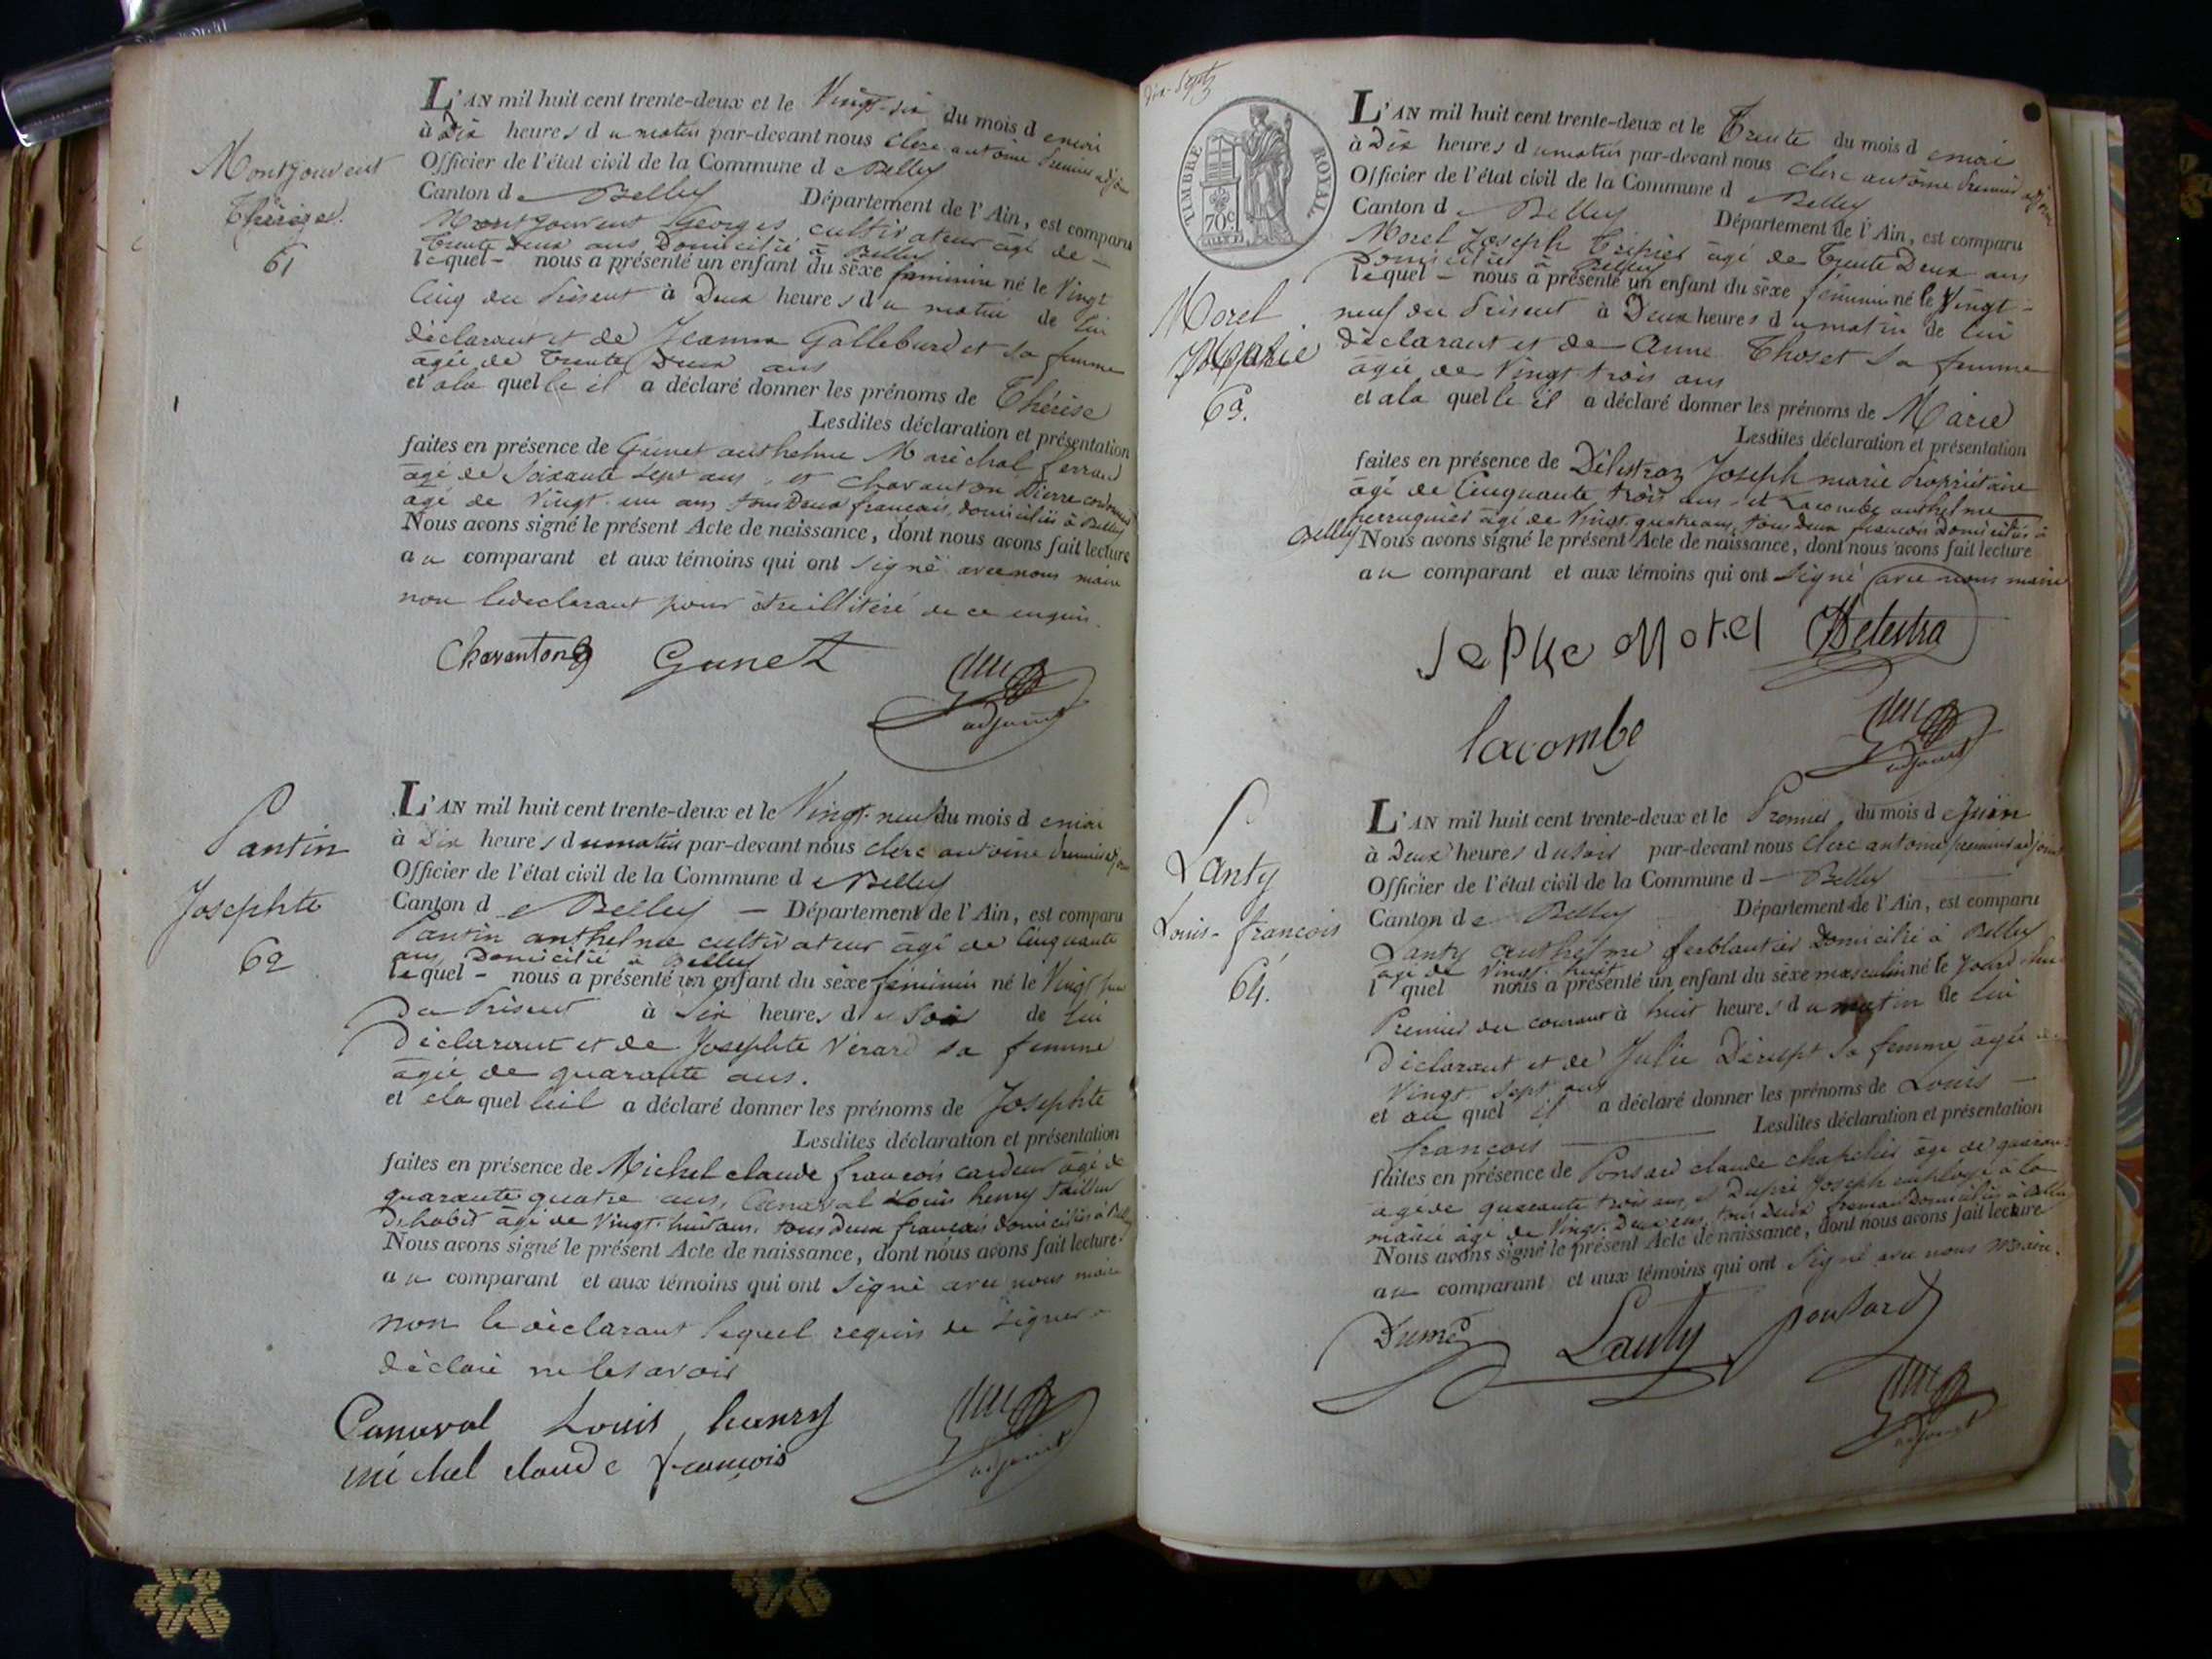 Montjouvent
Thérèze.
61
L'AN mil huit cent trente-deux et le Vingt-six du mois d emai
à Dix heures d u matin par-devant nous Clerc antoine Premier adjoint
Officier de l'état civil de la Commune d e Belley
Canton d e Belley Département de l'Ain, est comparu
Montjouvent Georges cultivateur âgé de
trente Deux ans Domicilié à Belley
lequel nous a présenté un enfant du sèxe feminin né le Vingt
Cinq du Présent à Deux heures d u matin de lui
déclarant et de Jeanne sa femme
agée de trente Deux ans
et ala quelle il a déclaré donner les prénoms de Thérèse
Lesdites déclaration et présentation
faites en présence de Gunet anthelme Maréchal ferrand
âgé de Soixante Sept ans, et Chavanton Pierre
âgé de Vingt un ans tous Deux français, domiciliés à Belley
Nous avons signé le présent Acte de naissance, dont nous avons fait lecture
a u comparant et aux témoins qui ont signé avec nous maire
non le déclarant pour être illitéré de ce enquis.
Chavanton Gunet
adjoint
Pantin
Josephte
62
L'AN mil huit cent trente-deux et le Vingt-neuf du mois d emai
à Dix heures d u matin par-devant nous clerc antoine Premier adjoint
Officier de l'état civil de la Commune d e Belley
Canton d e Belley — Département de l'Ain, est comparu
Pantin anthelme cultivateur âgé de Cinquante
ans Domicilié à Belley
lequel nous a présenté un enfant du sèxe féminin né le Vingt
du Présent à Six heures d u Soir de lui
Déclarant et de Josephte Vérard sa femme
agée de quarante ans.
et ela quel leil a déclaré donner les prénoms de Josephte
Lesdites déclaration et présentation
faites en présence de Michel claude françois cardeur âgé de
quarante quatre ans, Canaval Louis henry tailleur
D'habits âgé de Vingt huit ans, tous deux français domiciliés à Belley
Nous avons signé le présent Acte de naissance, dont nous avons fait lecture
a u comparant et aux témoins qui ont signé avec nous maire
non le déclarant lequel requis de signer a
déclaré ne le savoir
Canaval Louis henry
michel claude françois
adjoint
dix-Sept
TIMBRE ROYAL
70c
Morel
Marie
63.
L'AN mil huit cent trente-deux et le Trente du mois d emai
à Dix heures d u matin par-devant nous Clerc antoine Premier adjoint
Officier de l'état civil de la Commune d e Belley
Canton d e Belley Département de l'Ain, est comparu
Morel Joseph âgé de Trente Deux ans
Domicilié à Belley
lequel nous a présenté un enfant du sèxe féminin né le Vingt-
neuf du Présent à Deux heures d u matin de lui
déclarant et de Anne Thoset sa femme
agée de Vingt trois ans
et ala quel le il a déclaré donner les prénoms de Marie
Lesdites déclaration et présentation
faites en présence de Délestraz Joseph marie Propriétaire
âgé de Cinquante trois ans et Lacombe anthelme
perruquier âgé de Vingt quatre ans, tous deux français Domiciliés à
Belley Nous avons signé le présent Acte de naissance, dont nous avons fait lecture
a u comparant et aux témoins qui ont signé avec nous maire
Morel Delestra
lacombe
adjoint
Lanty
Louis-françois
64.
L'AN mil huit cent trente-deux et le Premier du mois d e Juin
à Deux heures d u Soir par-devant nous Clerc antoine premier adjoint
Officier de l'état civil de la Commune d — Belley
Canton d e Belley Département de l'Ain, est comparu
Lanty anthelme ferblantier Domicilié à Belley
âgé de Vingt-huit
l quel nous a présenté un enfant du sèxe masculin né le Jourd'hui
Premier du courant à huit heures d u matin de lui
déclarant et de Julie Dérupt sa femme agée de
Vingt-Sept ans
et au quel il a déclaré donner les prénoms de Louis —
françois — Lesdites déclaration et présentation
faites en présence de Ponsard claude chapelier âgé de
agé de quarante trois ans, et Dupré Joseph employé à la
mairie âgé de Vingt Deux ans, tous Deux français Domiciliés à Belley
Nous avons signé le présent Acte de naissance, dont nous avons fait lecture
a u comparant et aux témoins qui ont signé avec nous maire.
Lanty ponsard
adjoint